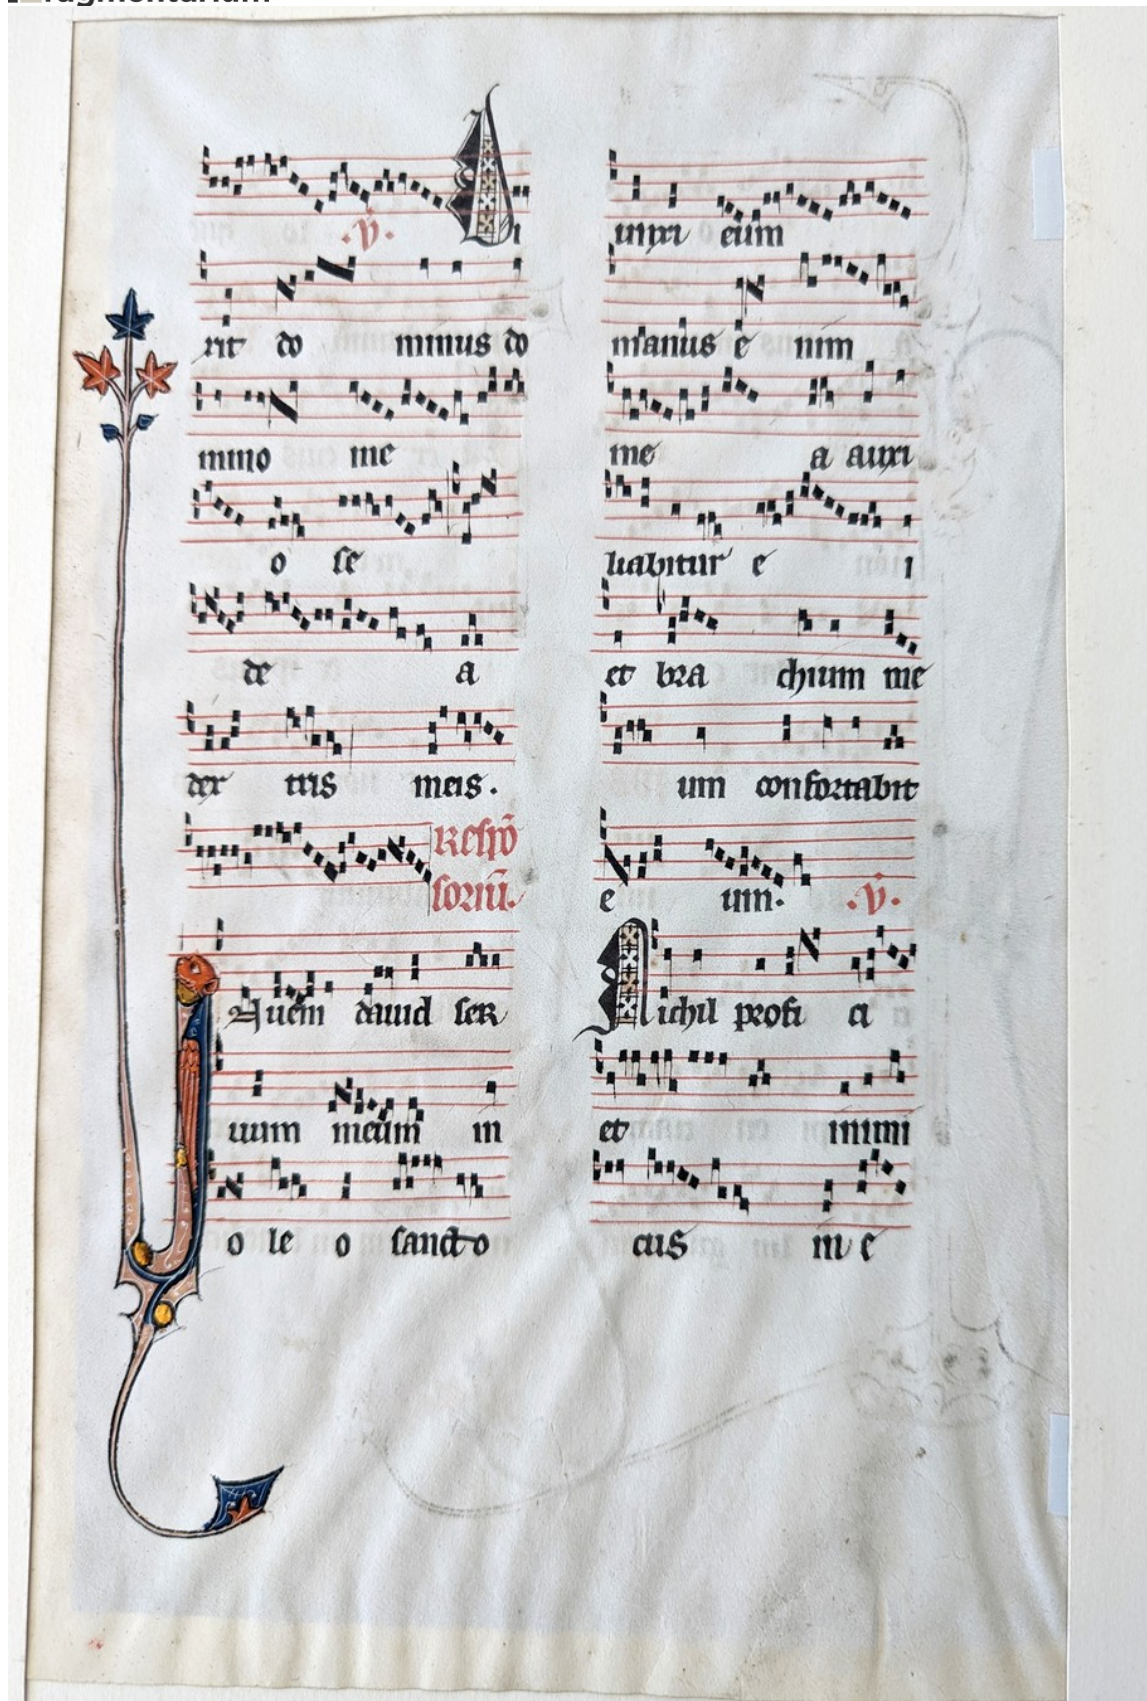 ragmentarium
.v̄. Di
xit do minus do
mino me
o se
de a
dex tris meis.
Respō
soriū.
Inuem dauid ser
uum meum in
o le o sancto
unxi eum
manus e nim
me a auxi
liabitur e i
et bra chium me
um confortabit
e um. .v̄.
Nichil profi ci
et inimi
cus in e